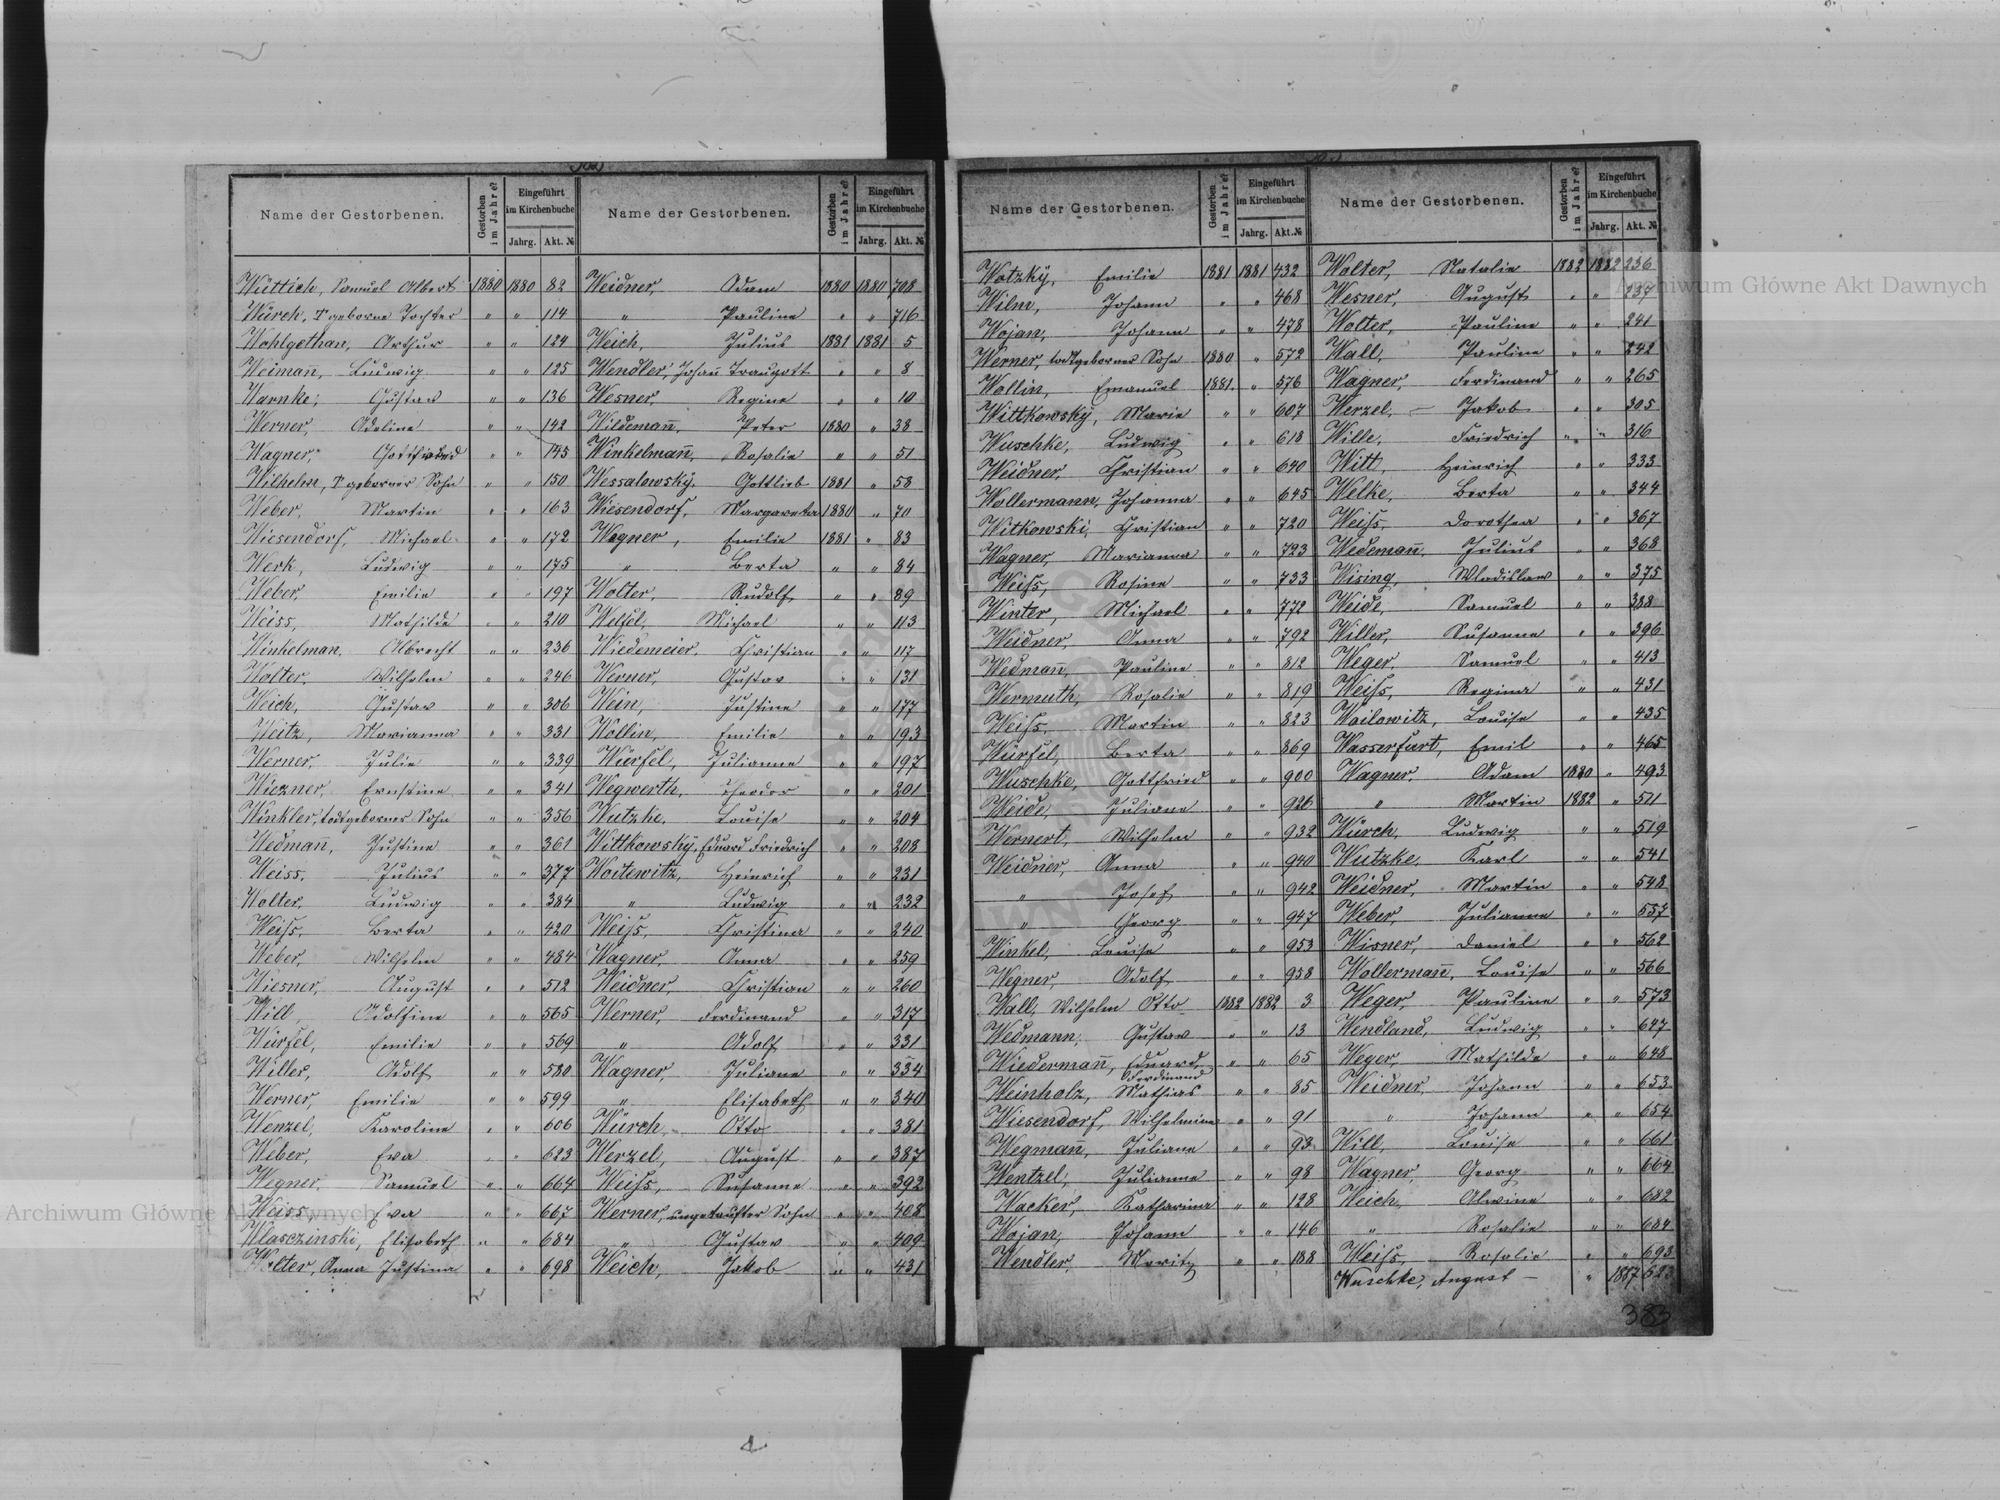 Name der Gestorbenen. Gestorben im Jahre? Eingeführt im Kirchenbuche Jahrg. Akt. №
Wüttich, Samuel Albert 1880 1880 82
Würch, Tgeborne Tochter " " 114
Wohlgethan, Arthur " " 124
Weiman̄, Ludwig " " 125
Warnke, Gustav " " 136
Werner, Adeline " " 142
Wagner, Gottfried " " 145
Wilhelm, Tgeborner Sohn " " 150
Weber, Martin " " 163
Wiesendorf, Michael " " 172
Werk, Ludwig " " 175
Weber, Emilie " " 197
Weiss, Mathilde " " 210
Winkelman, Albrecht " " 236
Wolter, Wilhelm " " 246
Weich, Gustav " " 306
Weitz, Marianna " " 331
Werner, Julie " " 339
Wiezner, Ernstine " " 341
Winkler, todtgeborner Sohn " " 356
Wedman̄, Justine " " 361
Weiss, Julius " " 377
Wolter, Ludwig " " 384
Weiſs, Berta " " 420
Weber, Wilhelm " " 484
Wiesner, August " " 512
Will, Adolfine " " 565
Würfel, Emilie " " 569
Willer, Adolf " " 580
Werner, Emilie " " 599
Wenzel, Karoline " " 606
Weber, Eva " " 623
Wegner, Samuel " " 664
Weiss, Eva " " 667
Wlasczinski, Elisabeth " " 684
Wolter, Anna Justina " " 698
Name der Gestorbenen. Gestorben im Jahre? Eingeführt im Kirchenbuche Jahrg. Akt. №
Weidner, Adam 1880 1880 708
" Pauline " " 716
Weich, Julius 1881 1881 5
Wendler, Johan̄ Traugott " " 8
Wesner, Regine " " 10
Wildeman̄, Peter 1880 " 38
Winkelman̄, Rosalie " " 51
Wessalowsky, Gottlieb 1881 " 58
Wiesendorf, Margareta 1880 " 70
Wagner, Emilie 1881 " 83
" Berta " " 84
Wolter, Rudolf " " 89
Welfel, Michael " " 113
Wiedemeier, Christian " " 117
Werner, Gustav " " 131
Wein, Justine " " 177
Wollin, Emilie " " 193
Würfel, Julianne " " 197
Wegwerth, Theodor " " 201
Wutzke, Louise " " 204
Wittkowsky, Eduard Friedrich " " 208
Woitewitz, Heinrich " " 231
" Ludwig " " 232
Weiſs, Christina " " 240
Wagner, Anna " " 259
Weidner, Christian " " 260
Werner, Ferdinand " " 317
" Adolf " " 331
Wagner, Juliane " " 334
" Elisabeth " " 340
Würch, Otto " " 381
Werzel, August " " 387
Weiſs, Susanne " " 392
Werner, ungetaufter Sohn " " 408
" Gustav " " 409
Weich, Jakob " " 431
Name der Gestorbenen. Gestorben im Jahre? Eingeführt im Kirchenbuche Jahrg. Akt. №
Wotzky, Emilie 1881 1881 432
Wilm, Johann " " 468
Wojan, Johann " " 478
Werner, todtgeborner Sohn 1880 " 572
Wollin, Emanuel 1881 " 576
Wittkowsky, Marie " " 607
Wuschke, Ludwig " " 618
Weidner, Christian " " 640
Wollermann, Johanna " " 645
Witkowski, Christian " " 720
Wagner, Marianna " " 723
Weiſs, Rosine " " 733
Winter, Michael " " 772
Weidner, Anna " " 792
Wedman̄, Pauline " " 812
Wermuth, Rosalie " " 819
Weiſs, Martin " " 823
Würfel, Berta " " 869
Wuschke, Gottfried " " 900
Weide, Juliane " " 926
Wernert, Wilhelm " " 932
Weidner, Anna " " 940
" Josef " " 942
" Georg " " 947
Winkel, Louise " " 953
Wegner, Adolf " " 958
Wall, Wilhelm Otto 1882 1882 3
Wedmann, Gustav " " 13
Wiederman̄, Eduard Ferdinand " " 65
Weinholz, Mathias " " 85
Wiesendorf, Wilhelmine " " 91
Wegman, Juliane " " 93
Wentzel, Julianne " " 98
Wacker, Katharina " " 128
Wojan, Johann " " 146
Wendler, Moritz " " 188
Name der Gestorbenen. Gestorben im Jahre? Eingeführt im Kirchenbuche Jahrg. Akt. №
Wolter, Natalie 1882 1882 236
Wesner, August " " 237
Wolter, Pauline " " 241
Wall, Pauline " " 242
Wagner, Ferdinand " " 265
Werzel, Jakob " " 305
Wille, Friedrich " " 316
Witt, Heinrich " " 333
Welke, Berta " " 344
Weiſs, Dorothea " " 367
Wedeman̄, Julius " " 368
Wising, Wladislaw " " 375
Weide, Samuel " " 388
Willer, Susanne " " 396
Weger, Samuel " " 413
Weiſs, Regina " " 431
Wailowitz, Louise " " 435
Wasserfurt, Emil " " 465
Wagner, Adam 1880 " 493
" Martin 1882 " 511
Würch, Ludwig " " 519
Wutzke, Karl " " 541
Weidner, Martin " " 548
Weber, Julianne " " 557
Wisner, Daniel " " 562
Wollerman̄, Louise " " 566
Weger, Pauline " " 573
Wendland, Ludwig " " 647
Weger, Mathilde " " 648
Weidner, Johann " " 653
" Johann " " 654
Will, Louise " " 661
Wagner, Georg " " 664
Weich, Alwine " " 682
" Rosalie " " 684
Weiſs, Rosalie " " 693
Wuschke, August – " 1887 523
383
Archiwum Główne Akt Dawnych
Archiwum Główne Akt Dawnych